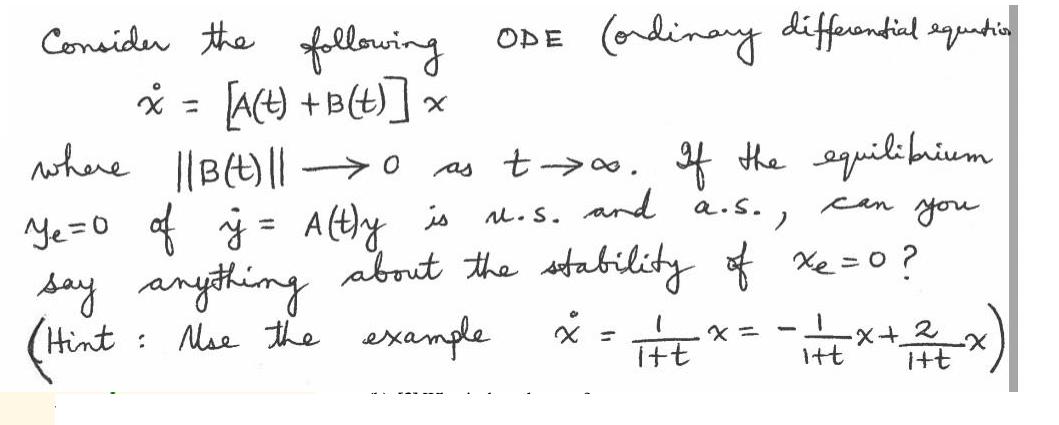 Consider the following ODE (ordinary differential equation
ẋ = [A(t) + B(t)] x
where ||B(t)|| → 0 as t → ∞. If the equilibrium
yₑ=0 of ẏ = A(t)y is u.s. and a.s., can you
say anything about the stability of xₑ=0?
(Hint : Use the example ẋ = 1/(1+t) x = - 1/(1+t) x + 2/(1+t) x)